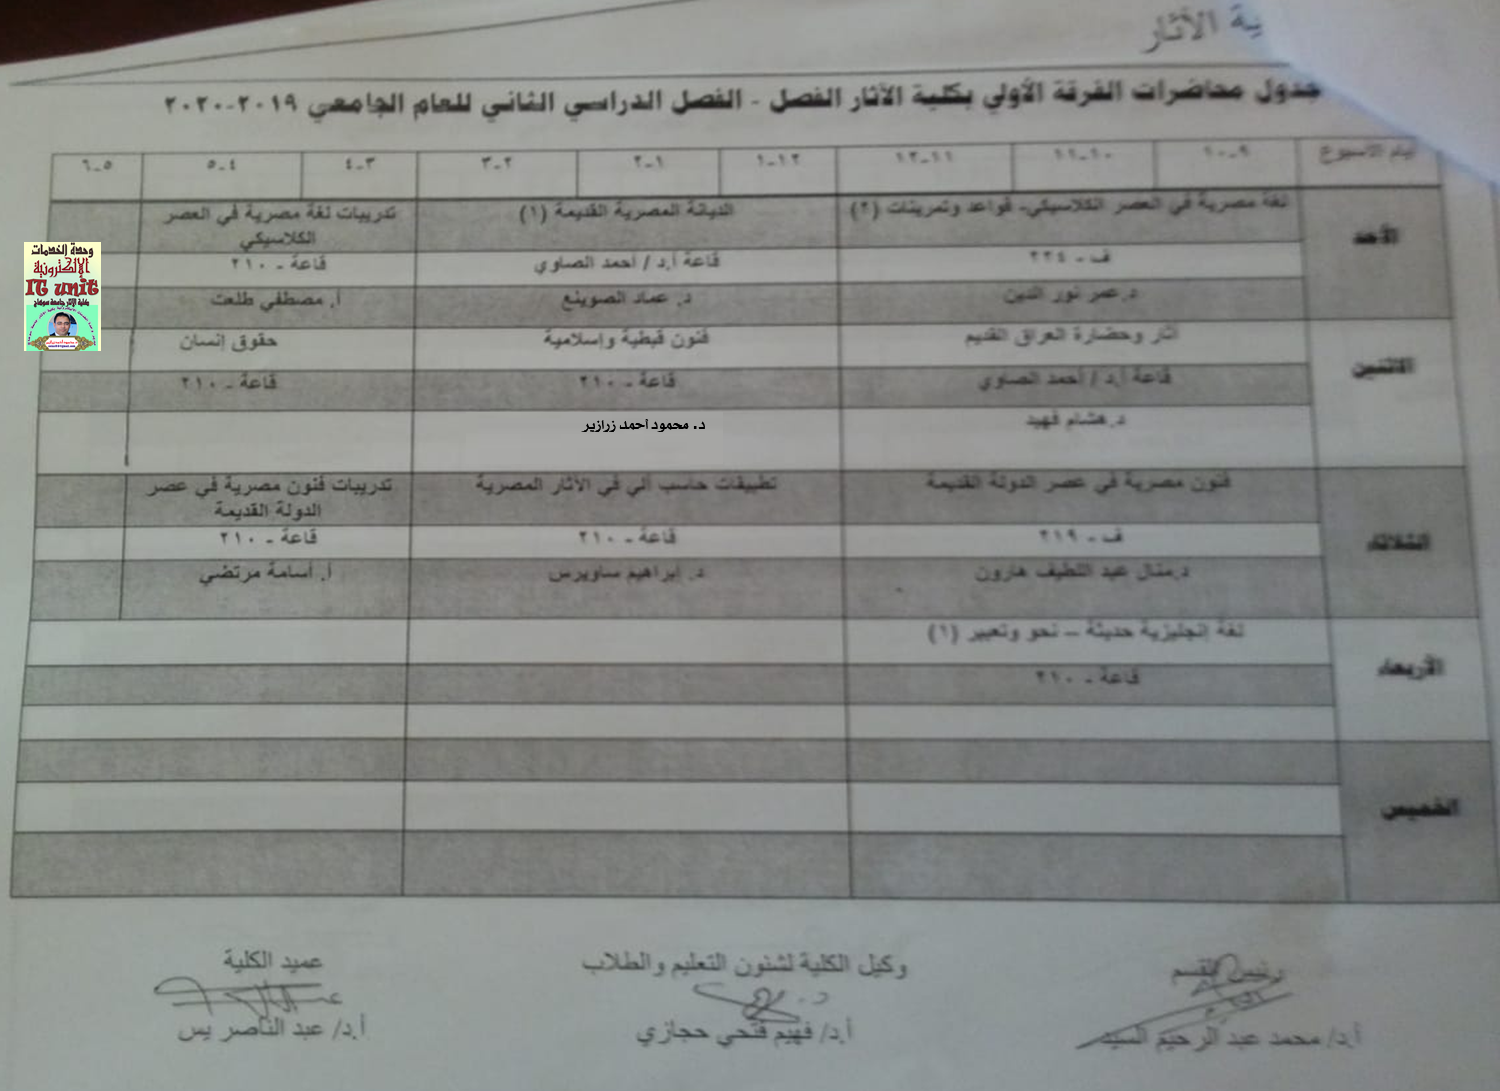 ية الآثار
جدول محاضرات الفرقة الأولي بكلية الآثار الفصل - الفصل الدراسي الثاني للعام الجامعي ٢٠١٩-٢٠٢٠
أيام الأسبوع ٩-١٠ ١٠-١١ ١١-١٢ ١٢-١ ١-٢ ٢-٣ ٣-٤ ٤-٥ ٥-٦
الأحد
لغة مصرية في العصر الكلاسيكي- قواعد وتمرينات (٢) الديانة المصرية القديمة (١) تدريبات لغة مصرية في العصر
الكلاسيكي
ف - ٢٢٤ قاعة أ.د / أحمد الصاوي قاعة - ٢١٠
د.عمر نور الدين د. عماد الصوينع أ. مصطفي طلعت
الاثنين
آثار وحضارة العراق القديم فنون قبطية وإسلامية حقوق إنسان
قاعة أ.د / أحمد الصاوي قاعة - ٢١٠ قاعة - ٢١٠
د.هشام فهيد د. محمود أحمد زرازير
الثلاثاء
فنون مصرية في عصر الدولة القديمة تطبيقات حاسب آلي في الآثار المصرية تدريبات فنون مصرية في عصر
الدولة القديمة
ف - ٢١٩ قاعة - ٢١٠ قاعة - ٢١٠
د.منال عبد اللطيف هارون د. إبراهيم ساويرس أ. أسامة مرتضي
الأربعاء
لغة إنجليزية حديثة – نحو وتعبير (١)
قاعة - ٢١٠
الخميس
رئيس القسم وكيل الكلية لشئون التعليم والطلاب عميد الكلية
أ.د/ محمد عبد الرحيم السيد أ.د/ فهيم فتحي حجازي أ.د/ عبد الناصر يس
وحدة الخدمات
الإلكترونية
IT unit
كلية الآثار جامعة سوهاج